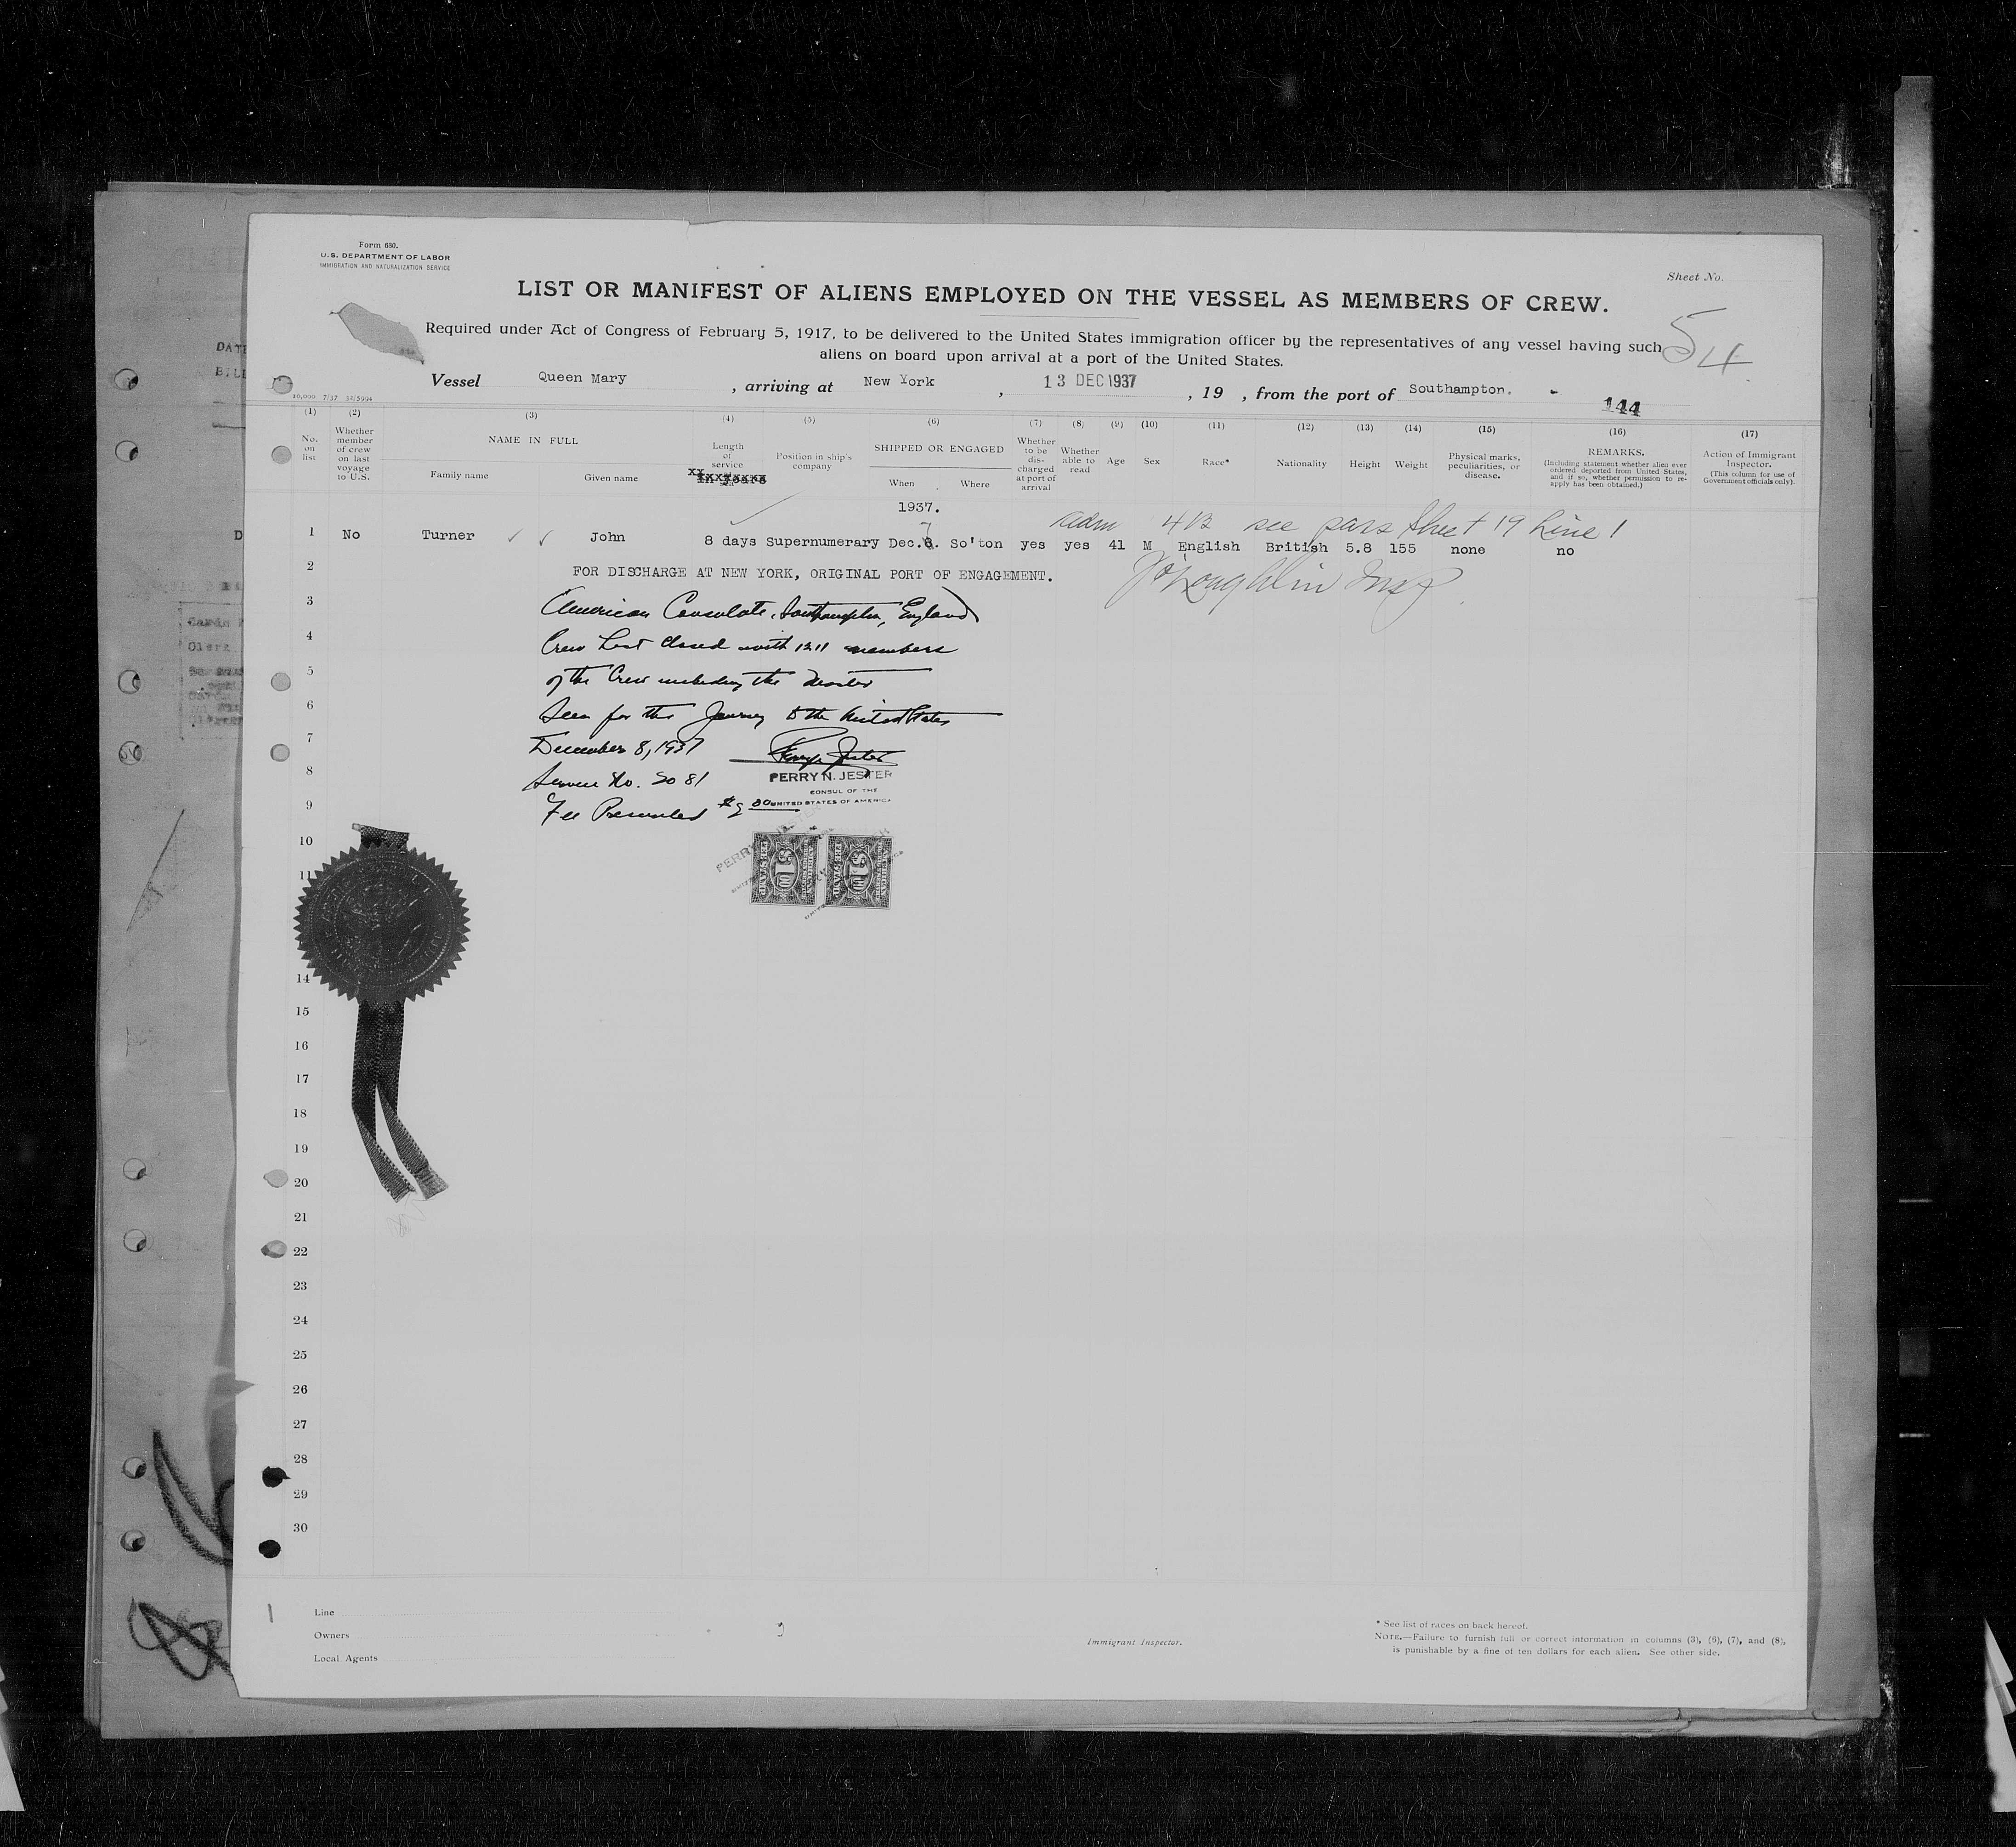 Form 680.
U.S. DEPARTMENT OF LABOR
IMMIGRATION AND NATURALIZATION SERVICE
Sheet No.
LIST OR MANIFEST OF ALIENS EMPLOYED ON THE VESSEL AS MEMBERS OF CREW.
54
Required under Act of Congress of February 5, 1917, to be delivered to the United States immigration officer by the representatives of any vessel having such
aliens on board upon arrival at a port of the United States.
Vessel Queen Mary, arriving at New York, 13 DEC 1937, 19 , from the port of Southampton.
144
10,000 7/37 32/5994
(1) (2) (3) (4) (5) (6) (7) (8) (9) (10) (11) (12) (13) (14) (15) (16) (17)
No. on list
Whether member of crew on last voyage to U.S.
NAME IN FULL
Family name
Given name
Length of service
in years
Position in ship's company
SHIPPED OR ENGAGED
When
Where
Whether to be discharged at port of arrival
Whether able to read
Age
Sex
Race*
Nationality
Height
Weight
Physical marks, peculiarities, or disease.
REMARKS.
(Including statement whether alien ever ordered deported from United States, and if so, whether permission to re-apply has been obtained.)
Action of Immigrant Inspector.
(This column for use of Government officials only).
1937.
4 13 see pass sheet 19 Line 1
1 No Turner John 8 days Supernumerary Dec. 7. So'ton yes yes 41 M English British 5.8 155 none no
2 FOR DISCHARGE AT NEW YORK, ORIGINAL PORT OF ENGAGEMENT.
J O'Loughlin Insp.
3 American Consulate, Southampton, England
4 Crew List closed with 1211 members
5 of the Crew including the Master
6 Seen for the Journey to the United States
7 December 8, 1937
8 Service No. 5081
PERRY N. JESTER
CONSUL OF THE
UNITED STATES OF AMERICA
9 Fee Prescribed $2.00
10
11
14
15
16
17
18
19
20
21
22
23
24
25
26
27
28
29
30
Line
Owners
Local Agents
Immigrant Inspector.
* See list of races on back hereof.
NOTE.—Failure to furnish full or correct information in columns (3), (6), (7), and (8),
is punishable by a fine of ten dollars for each alien. See other side.